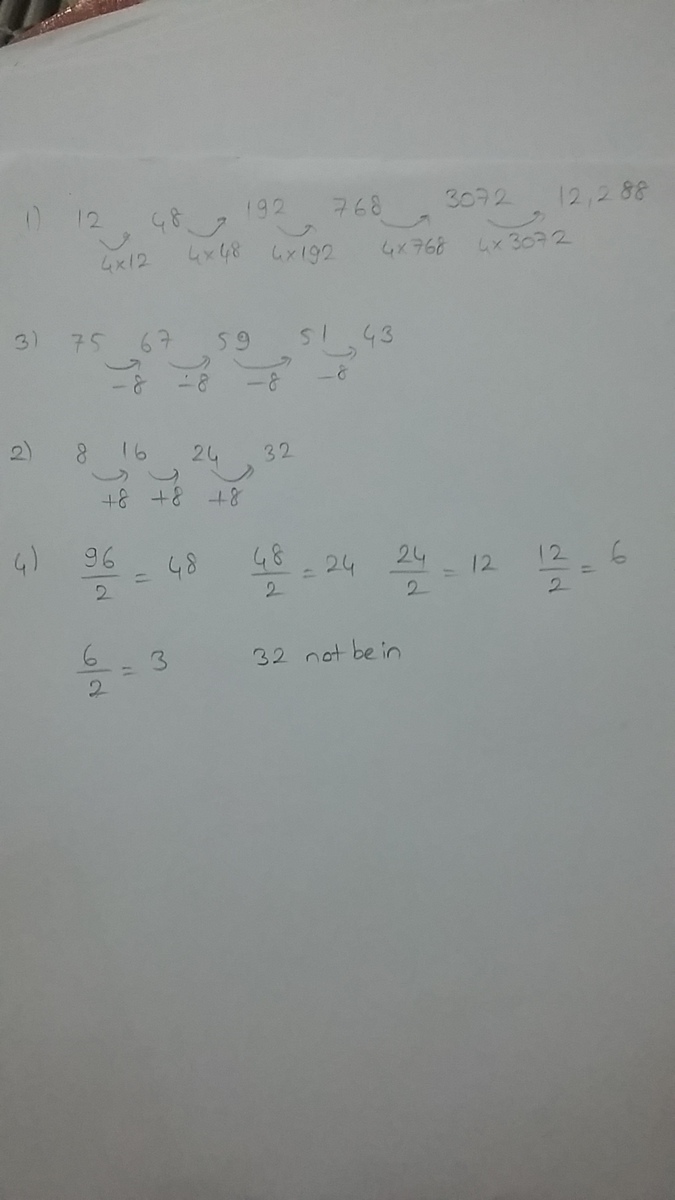 1) 12 48 192 768 3072 12,288
4×12 4×48 4×192 4×768 4×3072
3) 75 67 59 51 43
-8 -8 -8 -8
2) 8 16 24 32
+8 +8 +8
4) 96/2 = 48 48/2 = 24 24/2 = 12 12/2 = 6
6/2 = 3 32 not be in